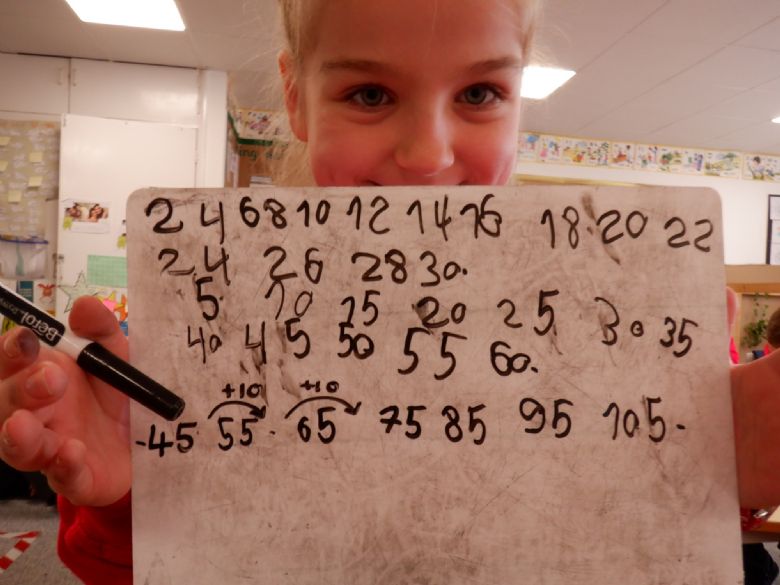 2 4 6 8 10 12 14 16 18 20 22
24 26 28 30.
5 10 15 20 25 30 35
40 45 50 55 60.
+10 +10
-45 55 65 75 85 95 105.
Berol